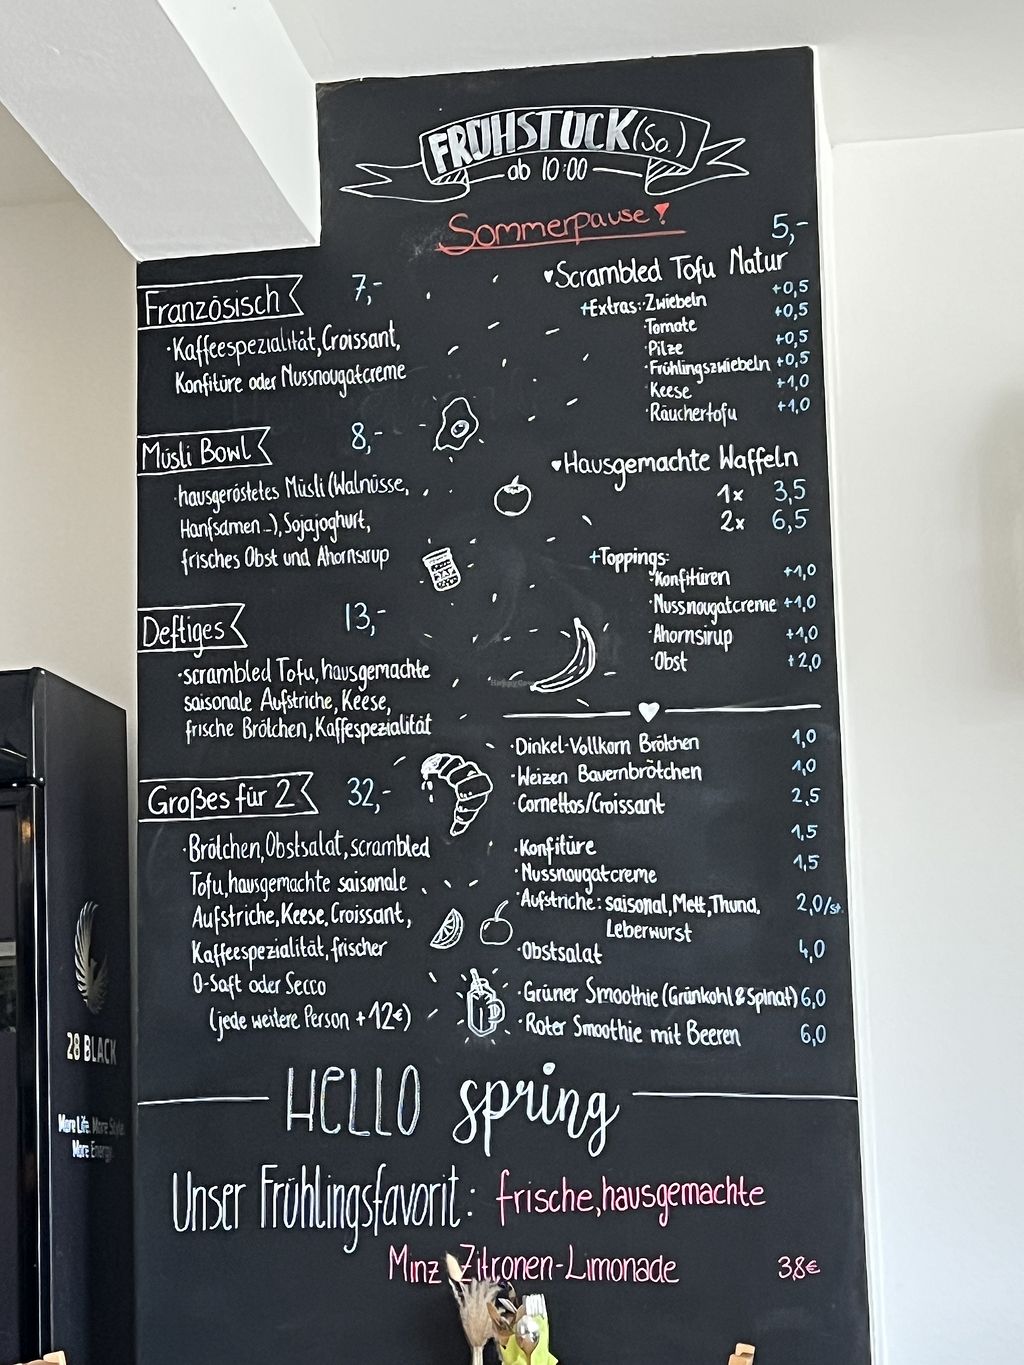 FRÜHSTÜCK (So.)
ab 10:00
Sommerpause!
Französisch 7,-
·Kaffeespezialität, Croissant,
Konfitüre oder Nussnougatcreme
Müsli Bowl 8,-
·hausgeröstetes Müsli (Walnüsse,
Hanfsamen...), Sojajoghurt,
frisches Obst und Ahornsirup
Deftiges 13,-
·scrambled Tofu, hausgemachte
saisonale Aufstriche, Keese,
frische Brötchen, Kaffespezialität
Großes für 2 32,-
·Brötchen, Obstsalat, scrambled
Tofu, hausgemachte saisonale
Aufstriche, Keese, Croissant,
Kaffeespezialität, frischer
O-Saft oder Secco
(jede weitere Person +12€)
♥Scrambled Tofu Natur 5,-
+Extras: ·Zwiebeln +0,5
·Tomate +0,5
·Pilze +0,5
·Frühlingszwiebeln +0,5
·Keese +1,0
·Räuchertofu +1,0
♥Hausgemachte Waffeln
1x 3,5
2x 6,5
+Toppings:
·Konfitüren +1,0
·Nussnougatcreme +1,0
·Ahornsirup +1,0
·Obst +2,0
·Dinkel-Vollkorn Brötchen 1,0
·Weizen Bauernbrötchen 1,0
·Cornettos/Croissant 2,5
·Konfitüre 1,5
·Nussnougatcreme 1,5
·Aufstriche: saisonal, Mett, Thuna, 2,0/st.
Leberwurst
·Obstsalat 4,0
·Grüner Smoothie (Grünkohl & Spinat) 6,0
·Roter Smoothie mit Beeren 6,0
HELLO spring
Unser Frühlingsfavorit: frische, hausgemachte
Minz Zitronen-Limonade 3,8€
28 BLACK
More Life. More Style.
More Energy.
JAM
HappyCow